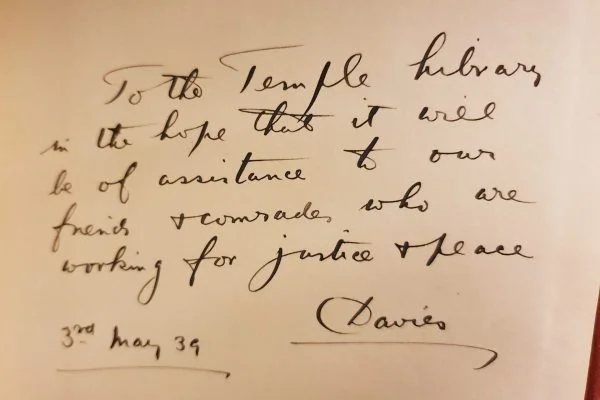 To the Temple Library
in the hope that it will
be of assistance to our
friends & comrades who are
working for justice & peace
Davies
3rd May 39